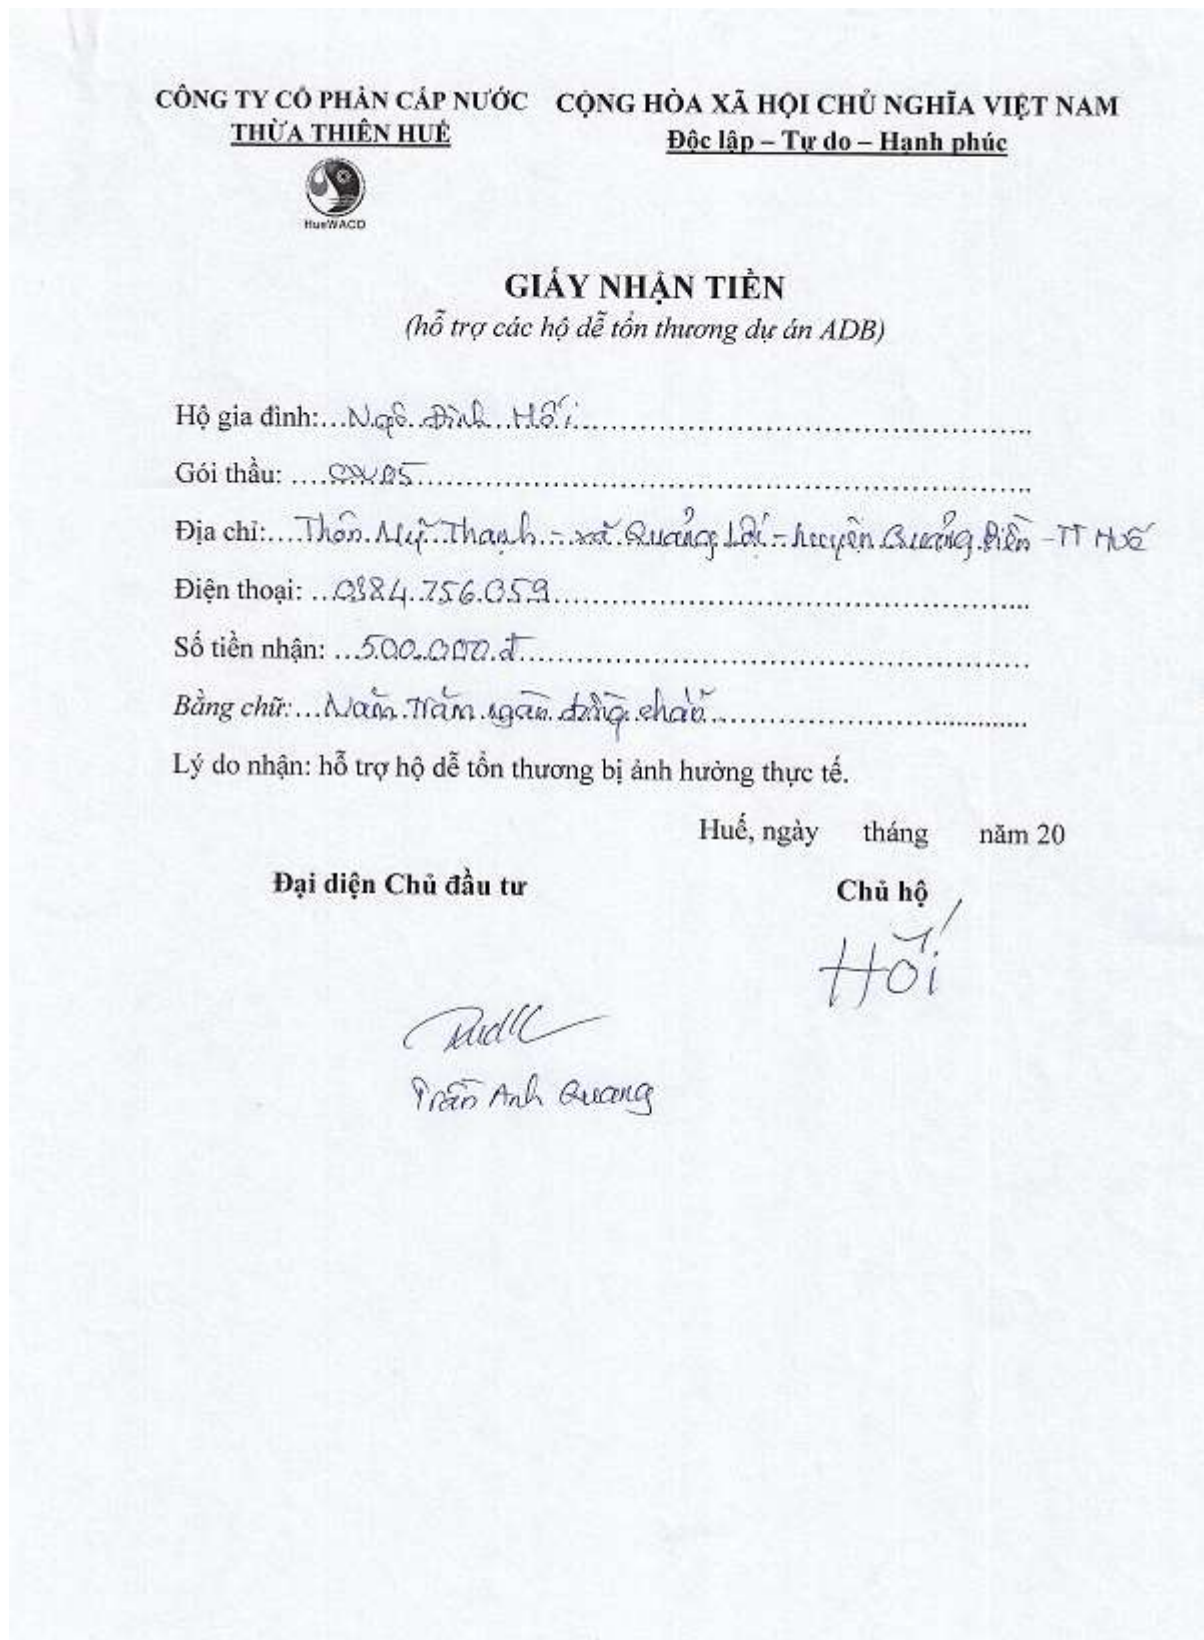 CÔNG TY CỔ PHẦN CẤP NƯỚC
THỪA THIÊN HUẾ
HueWACO
CỘNG HÒA XÃ HỘI CHỦ NGHĨA VIỆT NAM
Độc lập – Tự do – Hạnh phúc
GIẤY NHẬN TIỀN
(hỗ trợ các hộ dễ tổn thương dự án ADB)
Hộ gia đình:...Ngô Đình Hối
Gói thầu: ....
Địa chỉ:....Thôn Mỹ Thạnh - xã Quảng Lợi - huyện Quảng Điền - TT Huế
Điện thoại: ...0384.756.059
Số tiền nhận: ...500.000.đ
Bằng chữ:...Năm trăm ngàn đồng chẵn
Lý do nhận: hỗ trợ hộ dễ tổn thương bị ảnh hưởng thực tế.
Huế, ngày tháng năm 20
Đại diện Chủ đầu tư
Chủ hộ
Hối
Trần Anh Quang